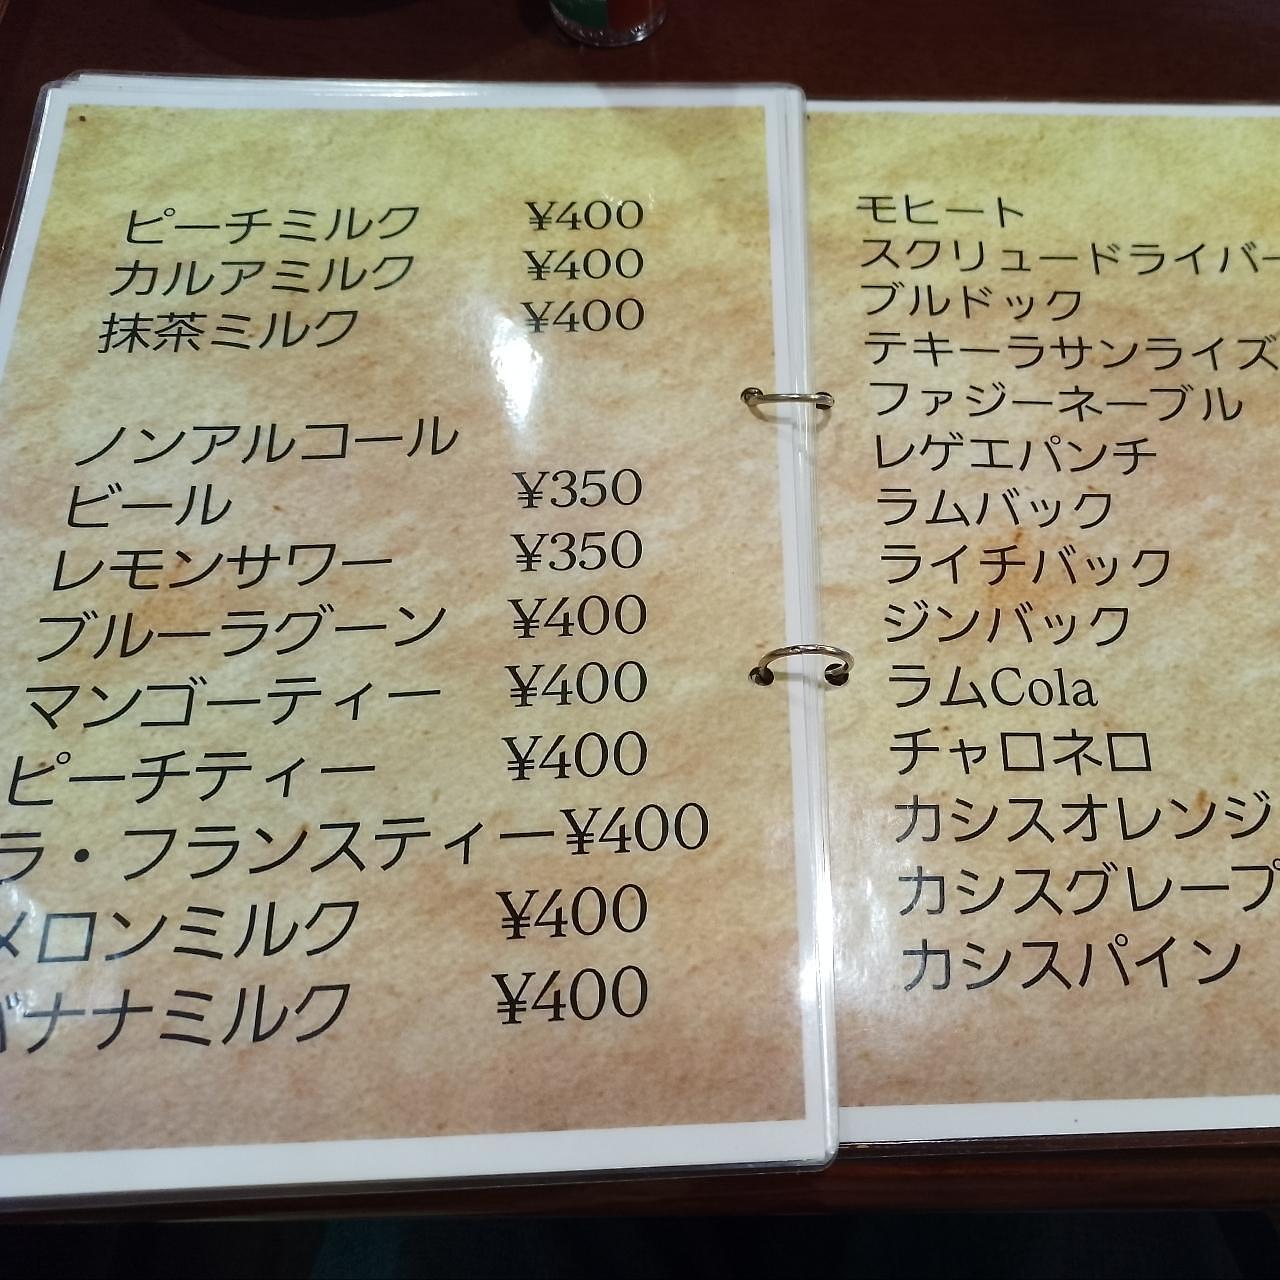 ピーチミルク ¥400
カルアミルク ¥400
抹茶ミルク ¥400
ノンアルコール
ビール ¥350
レモンサワー ¥350
ブルーラグーン ¥400
マンゴーティー ¥400
ピーチティー ¥400
ラ・フランスティー¥400
メロンミルク ¥400
バナナミルク ¥400
モヒート
スクリュードライバー
ブルドック
テキーラサンライズ
ファジーネーブル
レゲエパンチ
ラムバック
ライチバック
ジンバック
ラムCola
チャロネロ
カシスオレンジ
カシスグレープ
カシスパイン